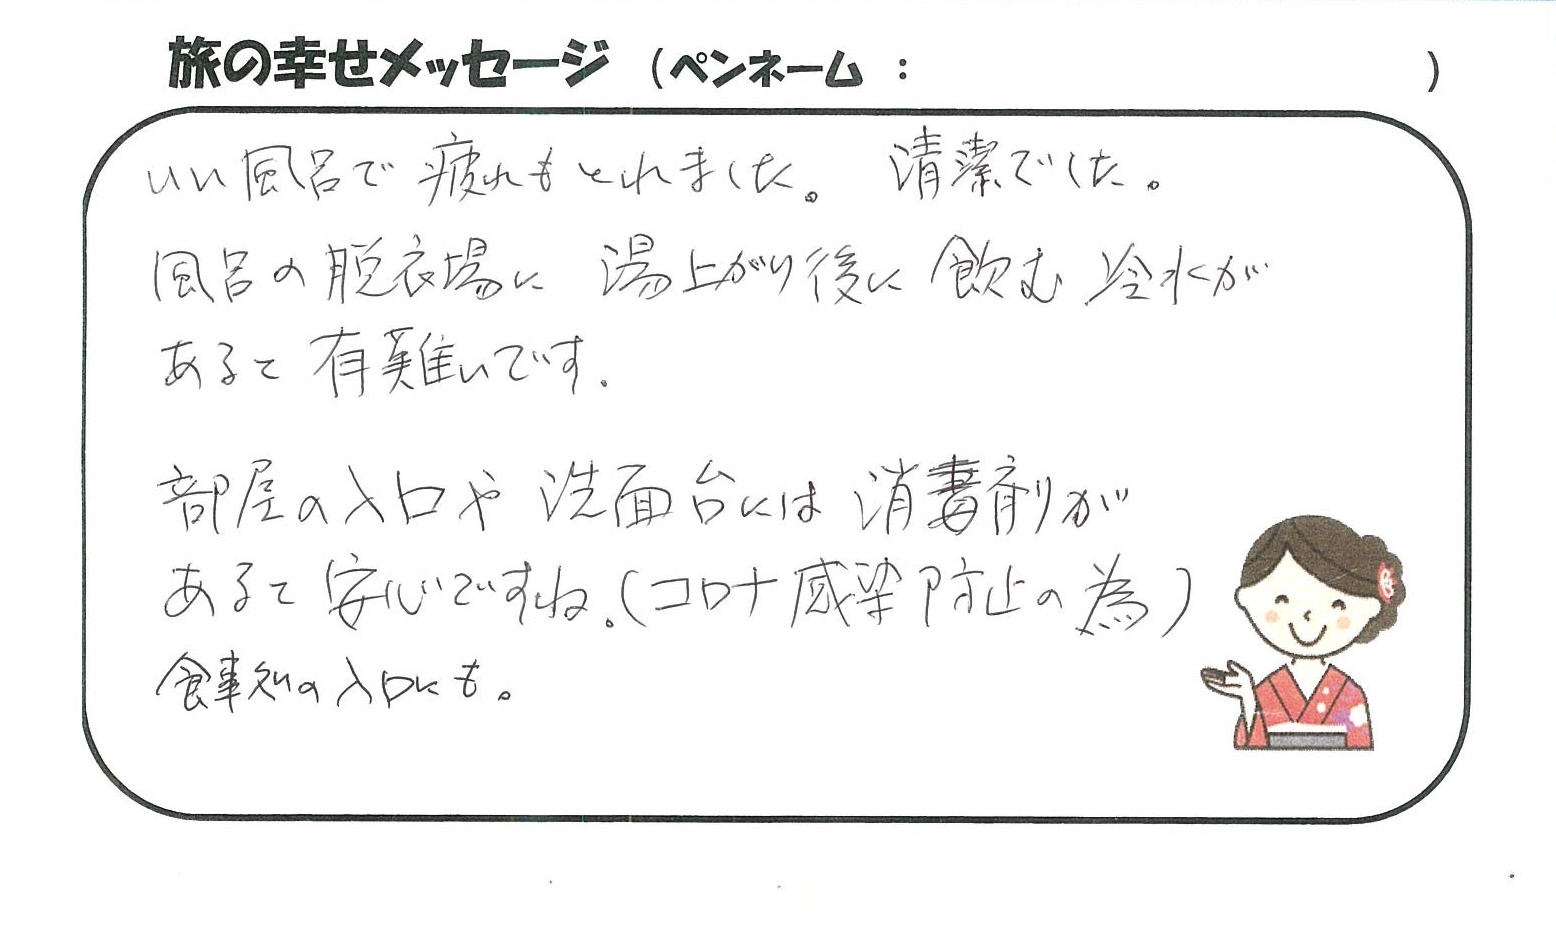 旅の幸せメッセージ （ペンネーム：　　　　　）
いい風呂で疲れもとれました。 清潔でした。
風呂の脱衣場に 湯上がり後に飲む冷水が
あると有難いです.
部屋の入口や洗面台には消毒剤が
あると安心ですね.(コロナ感染防止の為)
食事処の入口にも。